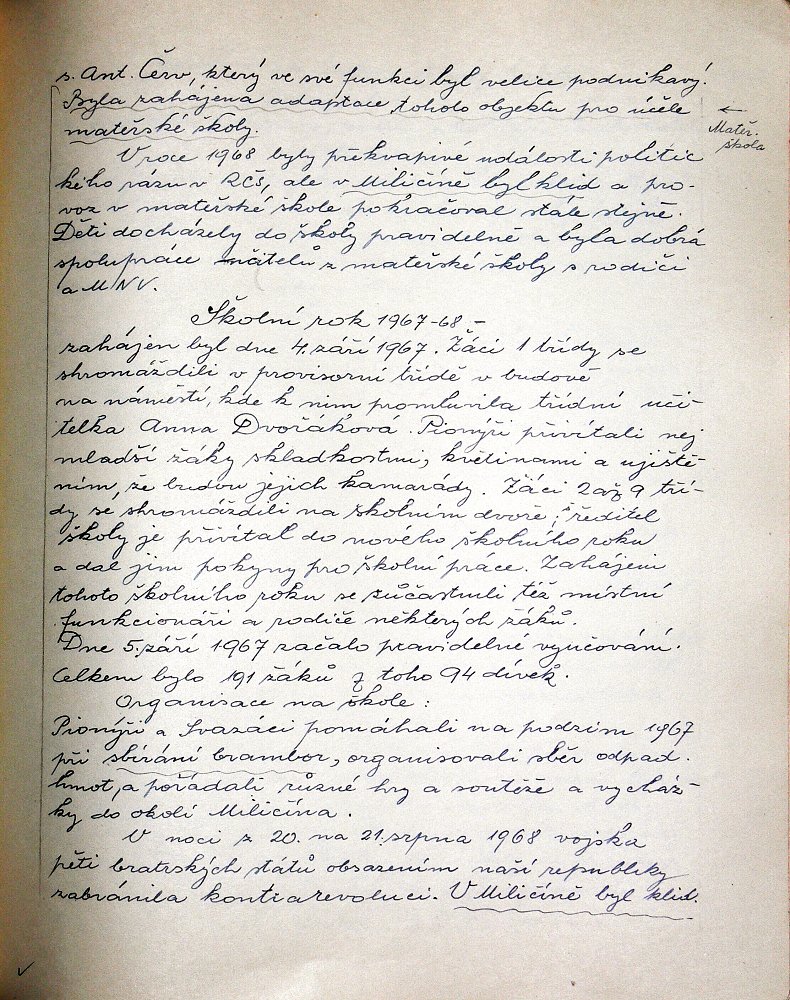 s. Ant. Červ, který ve své funkci byl velice podnikavý.
Byla zahájena adaptace tohoto objektu pro účele
mateřské školy.
← Mateř.
škola
V roce 1968 byly překvapivé události politic
kého rázu v RČS, ale v Miličíně byl klid a pro-
voz v mateřské škole pokračoval stále stejně.
Děti docházely do školy pravidelně a byla dobrá
spolupráce učitelů z mateřské školy s rodiči
a MNV.
Školní rok 1967-68 -
zahájen byl dne 4. září 1967. Žáci 1 třídy se
shromáždili v provisorní třídě v budově
na náměstí, kde k nim promluvila třídní uči-
telka Anna Dvořákova. Pionýři přivítali nej
mladší žáky skladkostmi, květinami a ujiště-
ním, že budou jejich kamarády. Žáci 2 až 9 tří-
dy se shromáždili na školním dvoře; ředitel
školy je přivítal do nového školního roku
a dal jim pokyny pro školní práce. Zahájení
tohoto školního roku se zúčastnili též místní
funkcionáři a rodiče některých žáků.
Dne 5. září 1967 začalo pravidelné vyučování.
Celkem bylo 191 žáků z toho 94 dívek.
Organisace na škole:
Pionýři a Svazáci pomáhali na podzim 1967
při sbírání brambor, organisovali sběr odpad.
hmot, a pořádali různé hry a soutěže a vycház-
ky do okolí Miličína.
V noci z 20. na 21. srpna 1968 vojska
pěti bratrských států obsazením naší republiky
zabránila kontrarevoluci. V Miličíně byl klid.